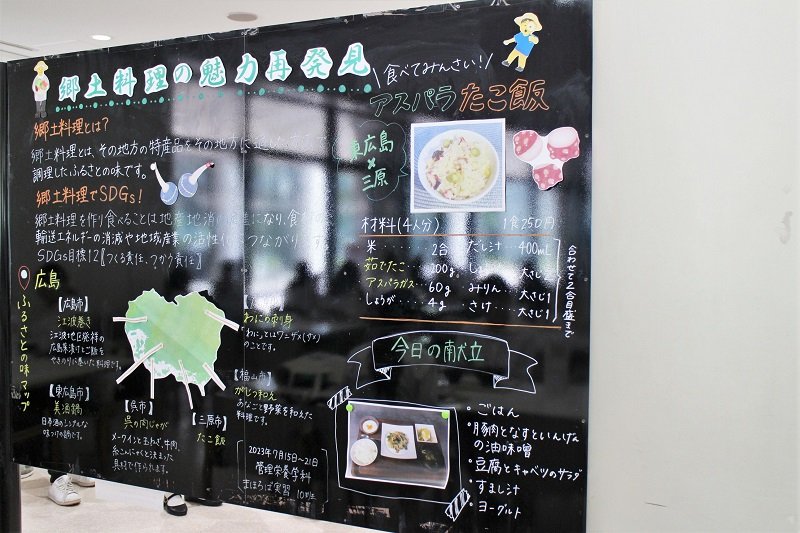 郷土料理の魅力再発見
郷土料理とは?
郷土料理とは、その地方の特産品をその地方に適した
調理したふるさとの味です。
郷土料理でSDGs!
郷土料理を作り食べることは地産地消の
輸送エネルギーの消減や地域産業の活性化 つながり
SDGs目標12『つくる責任、つかう責任』
広島
ふるさとの味マップ
【広島市】
江波巻き
江波地区発祥の
広島菜漬けとご飯を
やきのりに巻いた料理です。
【東広島市】
美酒鍋
日本酒のシンプルな
味つけの鍋です。
【呉市】
呉の肉じゃが
メークインと玉ねぎ、牛肉、
糸こんにゃくと決まった
具材で作られます。
【三原市】
たこ飯
わにの刺身
「わに」とはワニザメ(サメ)
のことです。
【福山市】
がじつ和え
あなごと野菜を和えた
料理です。
2023年7月15日〜21日
管理栄養学科
まほろば実習
\食べてみんさい!/
アスパラたこ飯
東広島
×
三原
材料(4人分) 1食250円
米・・・・・2合 だし汁・・・400mL
茹でたこ・・・200g
アスパラガス・・60g みりん・・大さじ1
しょうが・・・・4g さけ・・・大さじ1
合わせて2合目盛まで
今日の献立
・ごはん
・豚肉となすといんげん
の油味噌
・豆腐とキャベツのサラダ
・すまし汁
・ヨーグルト